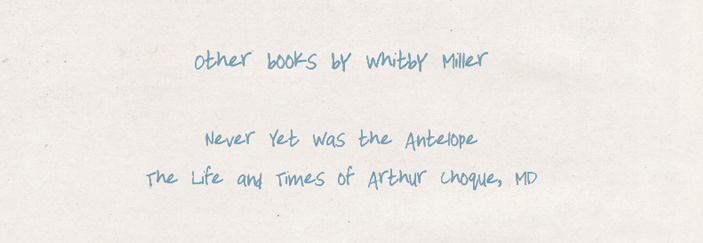 Other books by Whitby Miller
Never Yet Was the Antelope
The Life and Times of Arthur Choque, MD